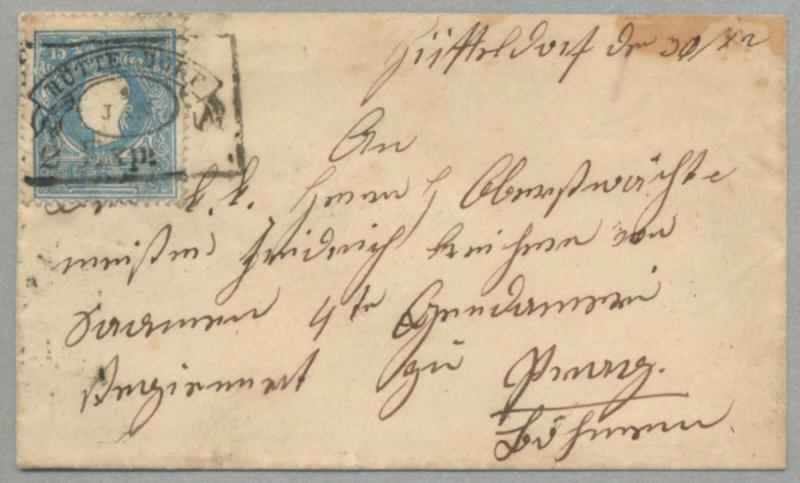 Hütteldorf den 30/12
15
HÜTTELDORF
Expt
An
k. k. Herrn H Oberstwacht
meister Freidrich Freiherr von
4te Gendameri
Regiement zu Prag.
Böhmen